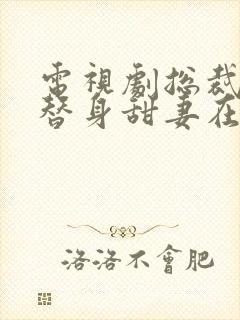 電視劇總裁
替身甜妻在
洛洛不會肥